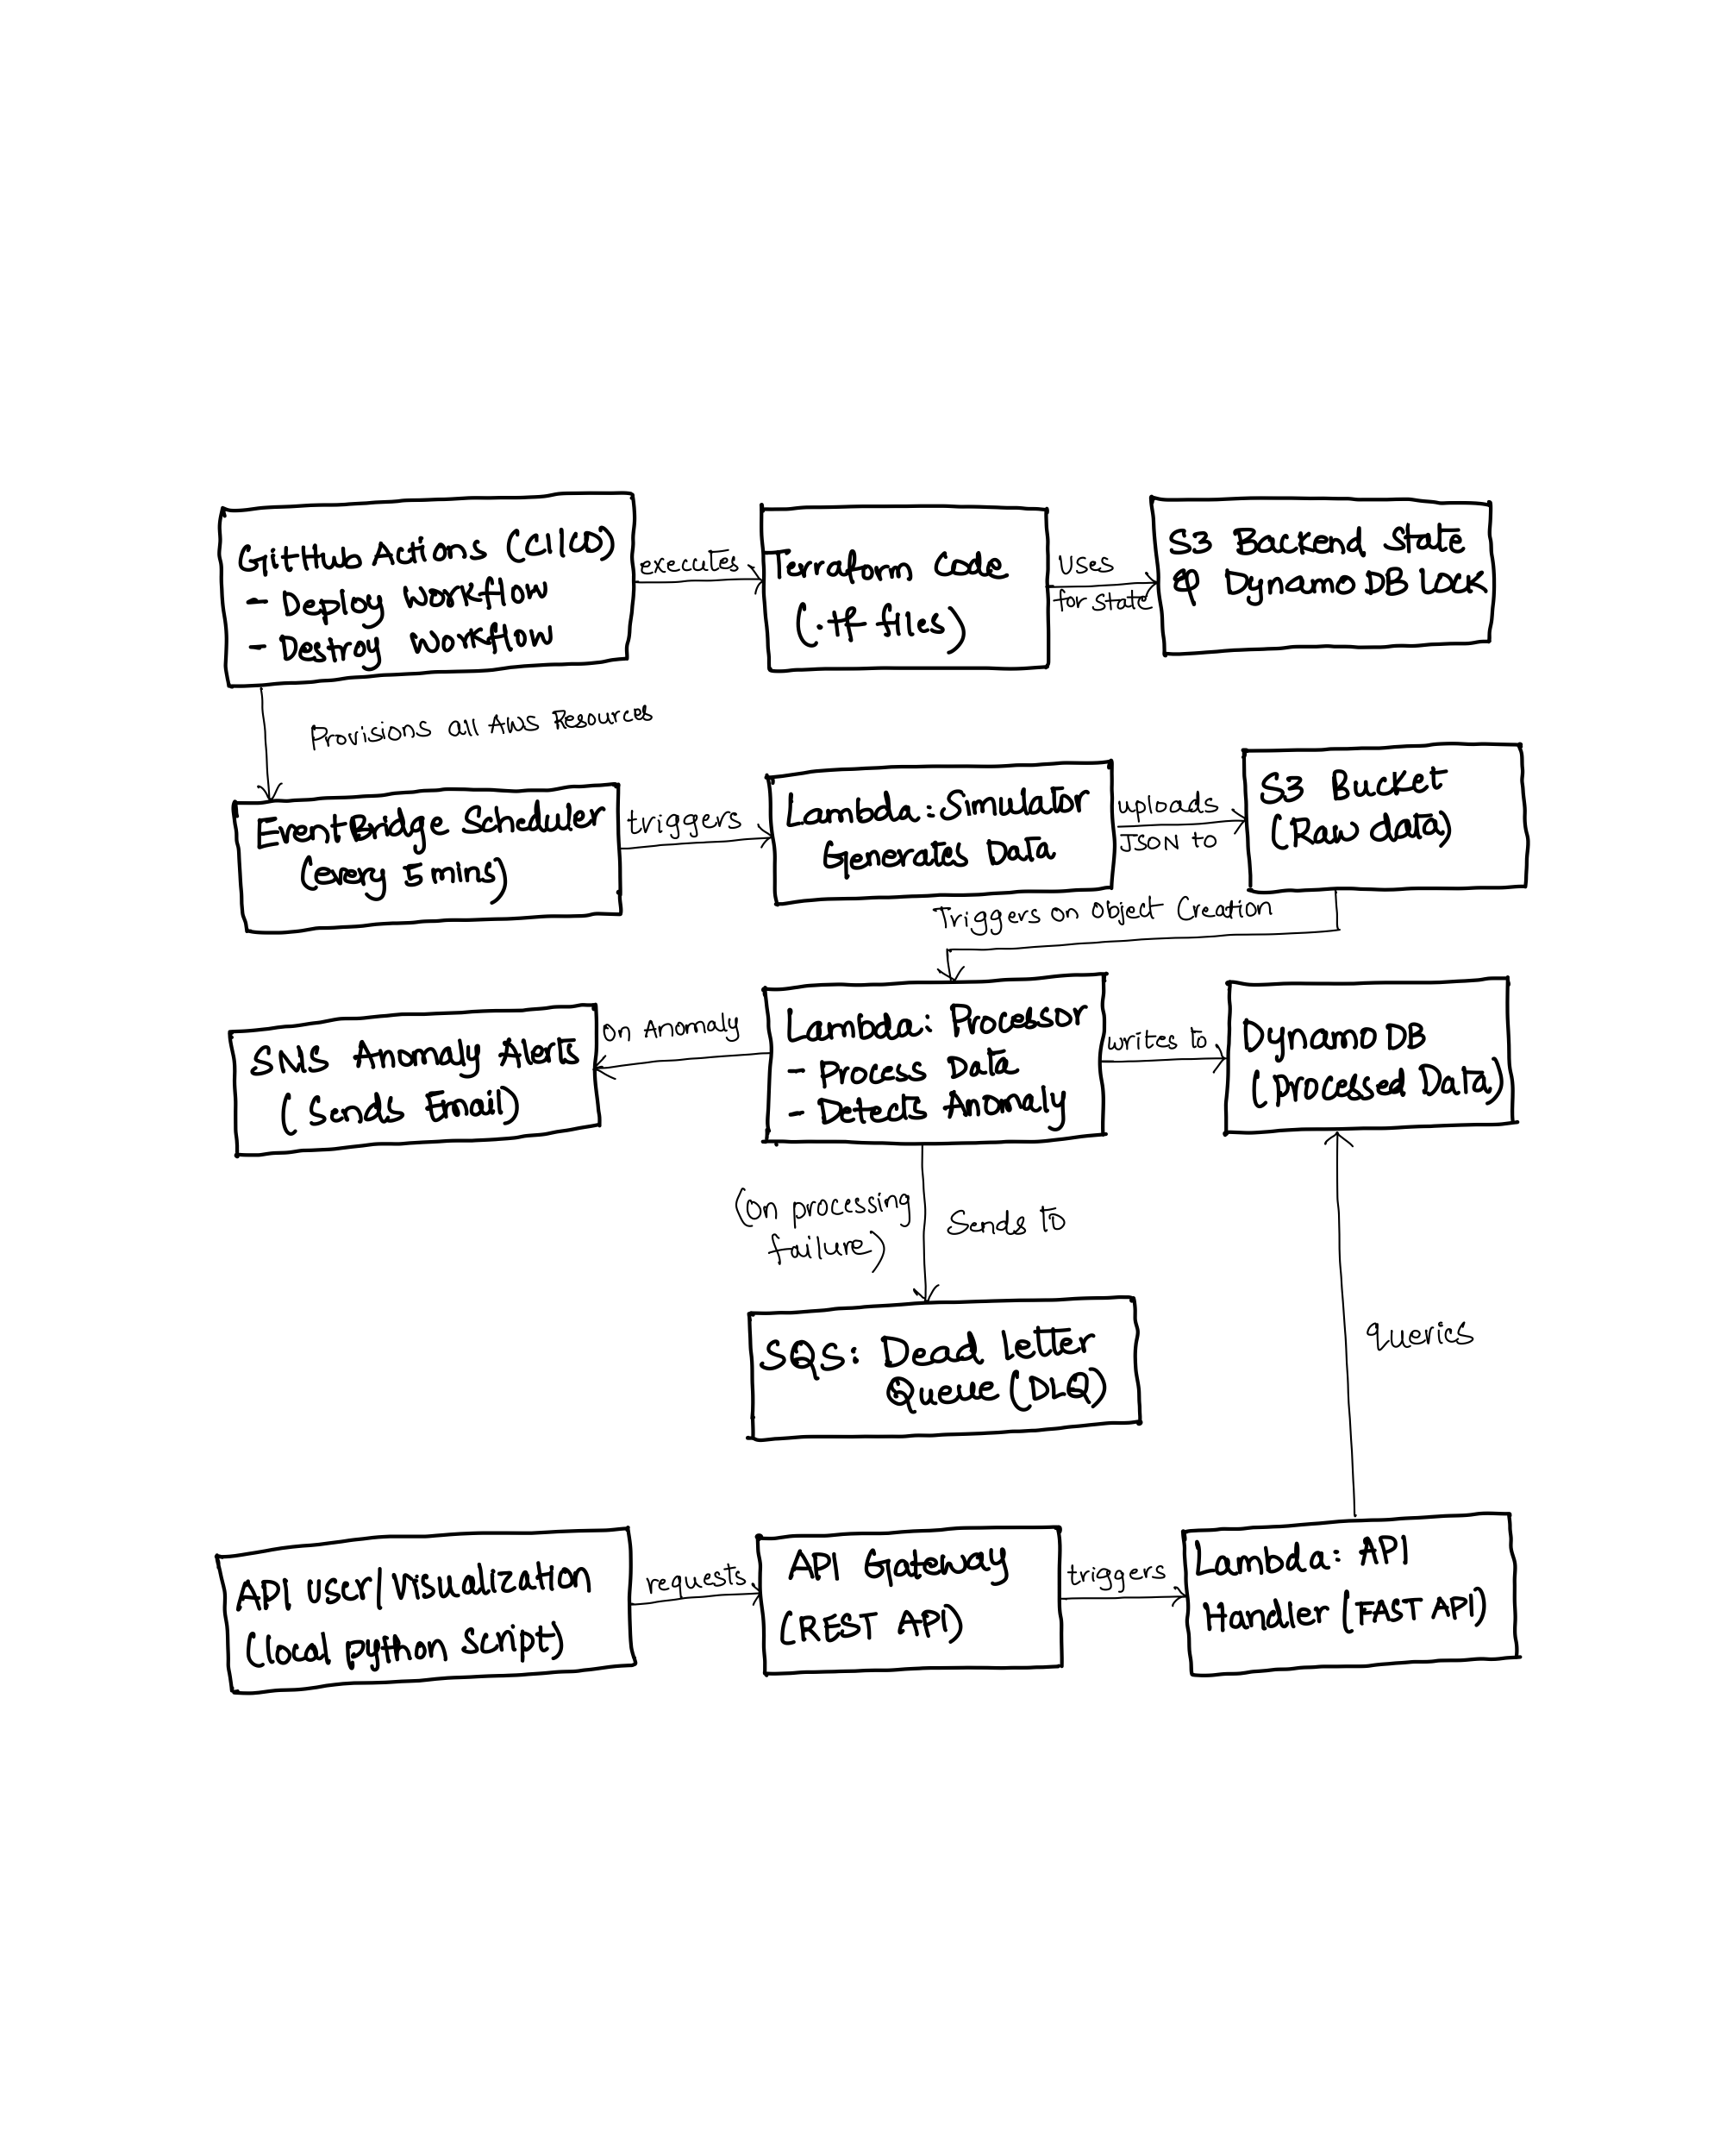 GitHub Actions (CI/CD)
- Deploy Workflow
- Destroy Workflow
executes
Terraform Code
(.tf files)
Uses
for state
S3 Backend State
& DynamoDB Lock
Provisions all AWS Resources
EventBridge Scheduler
(every 5 mins)
triggers
Lambda: Simulator
Generates Data
uploads
JSON to
S3 Bucket
(Raw data)
Triggers on Object Creation
SNS Anomaly Alerts
(Sends Email)
On Anomaly
Lambda: Processor
- Process Data
- Detects Anomaly
writes to
Dynamo DB
(Processed Data)
(On processing
failure)
Sends to
SQS: Dead letter
Queue (DLQ)
queries
API User/Visualization
(local python script)
requests
API Gateway
(REST API)
triggers
Lambda: API
Handler (FAST API)